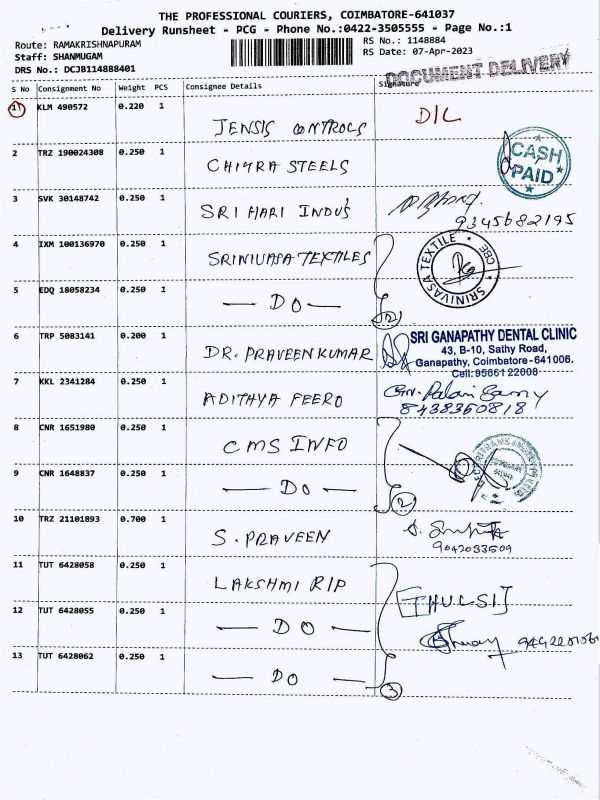 THE PROFESSIONAL COURIERS, COIMBATORE-641037
Delivery Runsheet - PCG - Phone No.:0422-3505555 - Page No.:1
Route: RAMAKRISHNAPURAM
RS No.: 1148884
Staff: SHANMUGAM
RS Date: 07-Apr-2023
DRS No.: DCJB114888401
DOCUMENT DELIVERY
S No Consignment No Weight PCS Consignee Details Signature
1 KLM 490572 0.220 1 JENSIS CONTROLS D/L
2 TRZ 190024308 0.250 1 CHITRA STEELS
CASH
PAID
3 SVK 30148742 0.250 1 SRI HARI INDUS
9345682195
4 IXM 100136970 0.250 1 SRINIVASA TEXTILES
SRINIVASA TEXTILE CBE
5 EDQ 18058234 0.250 1 — DO — 2
6 TRP 5083141 0.200 1 DR. PRAVEEN KUMAR
SRI GANAPATHY DENTAL CLINIC
43, B-10, Sathy Road,
Ganapathy, Coimbatore-641006.
Cell:9566122008
7 KKL 2341284 0.250 1 ADITHYA FEERO
8438350818
8 CNR 1651980 0.250 1 CMS INFO
9 CNR 1648837 0.250 1 — DO — 2
10 TRZ 21101893 0.700 1 S. PRAVEEN
9042033509
11 TUT 6428058 0.250 1 LAKSHMI RIP
[THULSI]
12 TUT 6428055 0.250 1 — DO —
13 TUT 6428062 0.250 1 — DO — 3